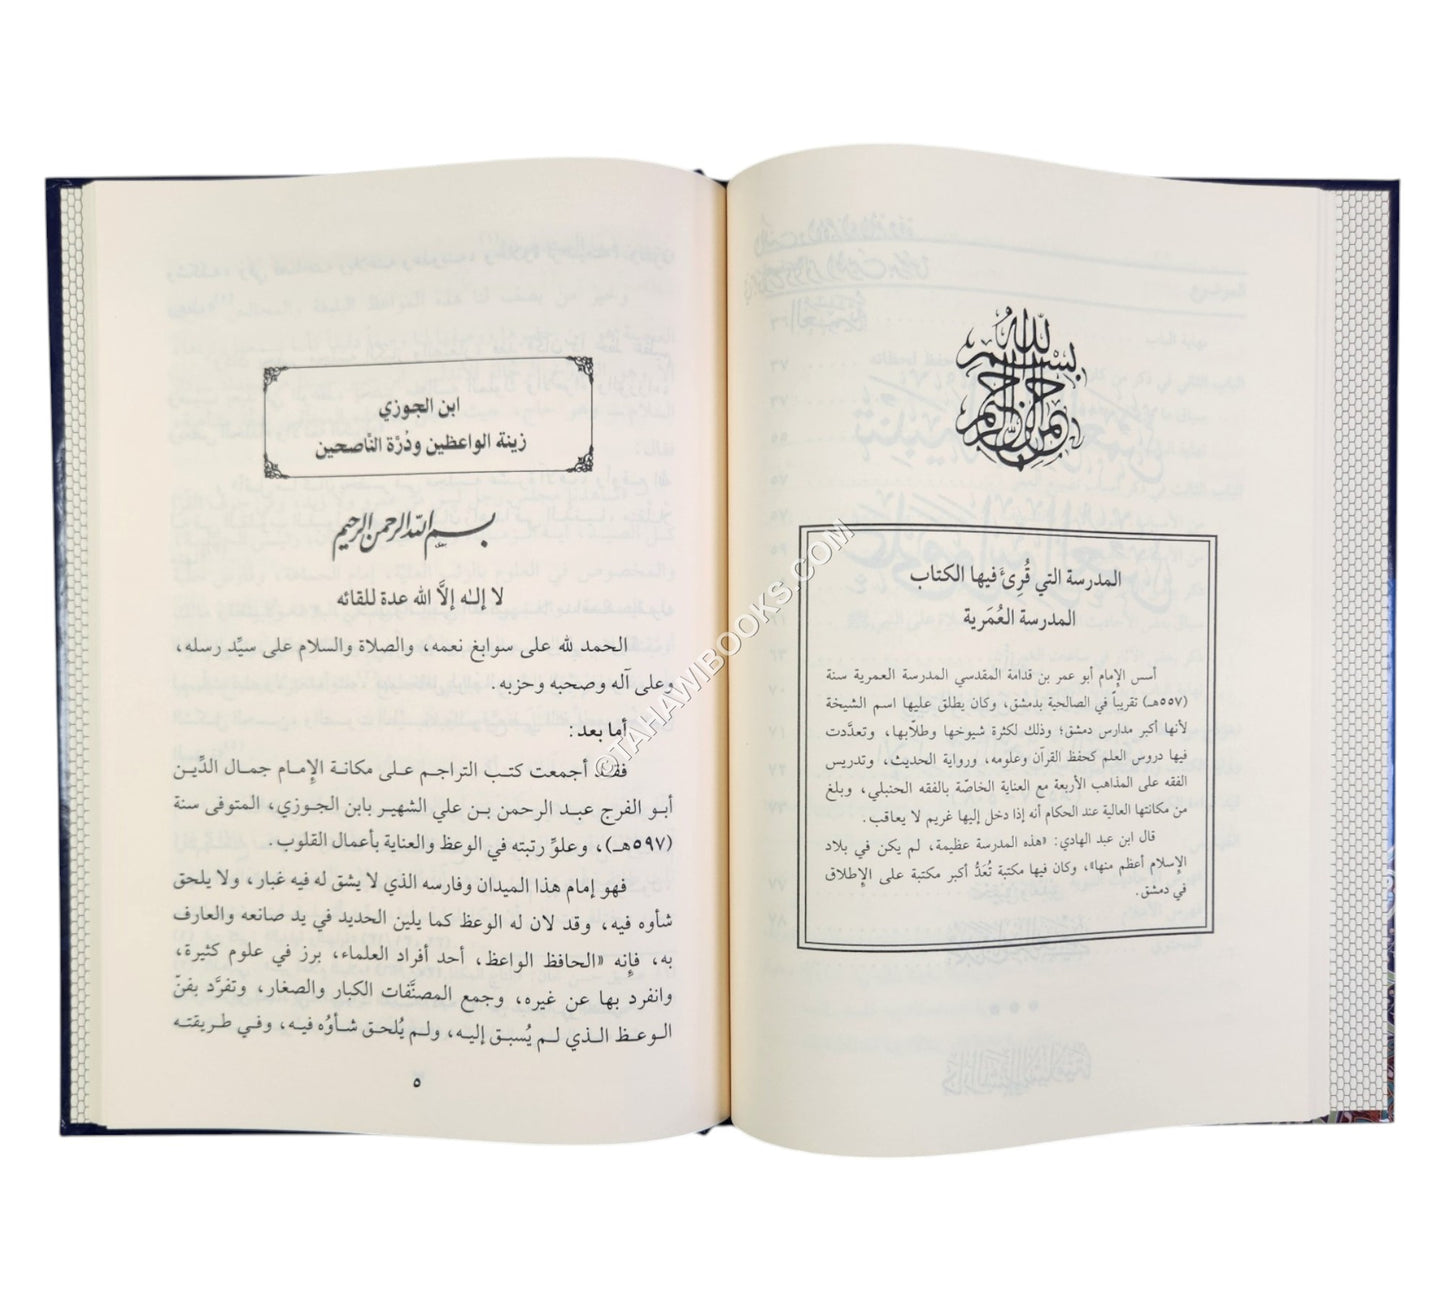 بسم الله الرحمن الرحيم
المدرسة التي قُرِئَ فيها الكتاب
المدرسة العُمَرية
أسس الإمام أبو عمر بن قدامة المقدسي المدرسة العمرية سنة
(٥٥٧هـ) تقريباً في الصالحية بدمشق، وكان يطلق عليها اسم الشيخة
لأنها أكبر مدارس دمشق؛ وذلك لكثرة شيوخها وطلّابها، وتعدَّدت
فيها دروس العلم كحفظ القرآن وعلومه، ورواية الحديث، وتدريس
الفقه على المذاهب الأربعة مع العناية الخاصّة بالفقه الحنبلي، وبلغ
من مكانتها العالية عند الحكام أنه إذا دخل إليها غريم لا يعاقب.
قال ابن عبد الهادي: «هذه المدرسة عظيمة، لم يكن في بلاد
الإسلام أعظم منها»، وكان فيها مكتبة تُعَدُّ أكبر مكتبة على الإطلاق
في دمشق.
ابن الجوزي
زينة الواعظين ودُرَّة النَّاصحين
بسم الله الرحمن الرحيم
لا إلٰه إلَّا الله عدة للقائه
الحمد لله على سوابغ نعمه، والصلاة والسلام على سيِّد رسله،
وعلى آله وصحبه وحزبه.
أما بعد:
فقد أجمعت كتب التراجم على مكانة الإمام جمال الدِّين
أبو الفرج عبد الرحمن بن علي الشهير بابن الجوزي، المتوفى سنة
(٥٩٧هـ)، وعلوِّ رتبته في الوعظ والعناية بأعمال القلوب.
فهو إمام هذا الميدان وفارسه الذي لا يشق له فيه غبار، ولا يلحق
شأوه فيه، وقد لان له الوعظ كما يلين الحديد في يد صانعه والعارف
به، فإنه «الحافظ الواعظ، أحد أفراد العلماء، برز في علوم كثيرة،
وانفرد بها عن غيره، وجمع المصنَّفات الكبار والصغار، وتفرَّد بفنّ
الوعظ الذي لم يُسبق إليه، ولم يُلحق شأوُه فيه، وفي طريقته
٥
©TAHAWIBOOKS.COM